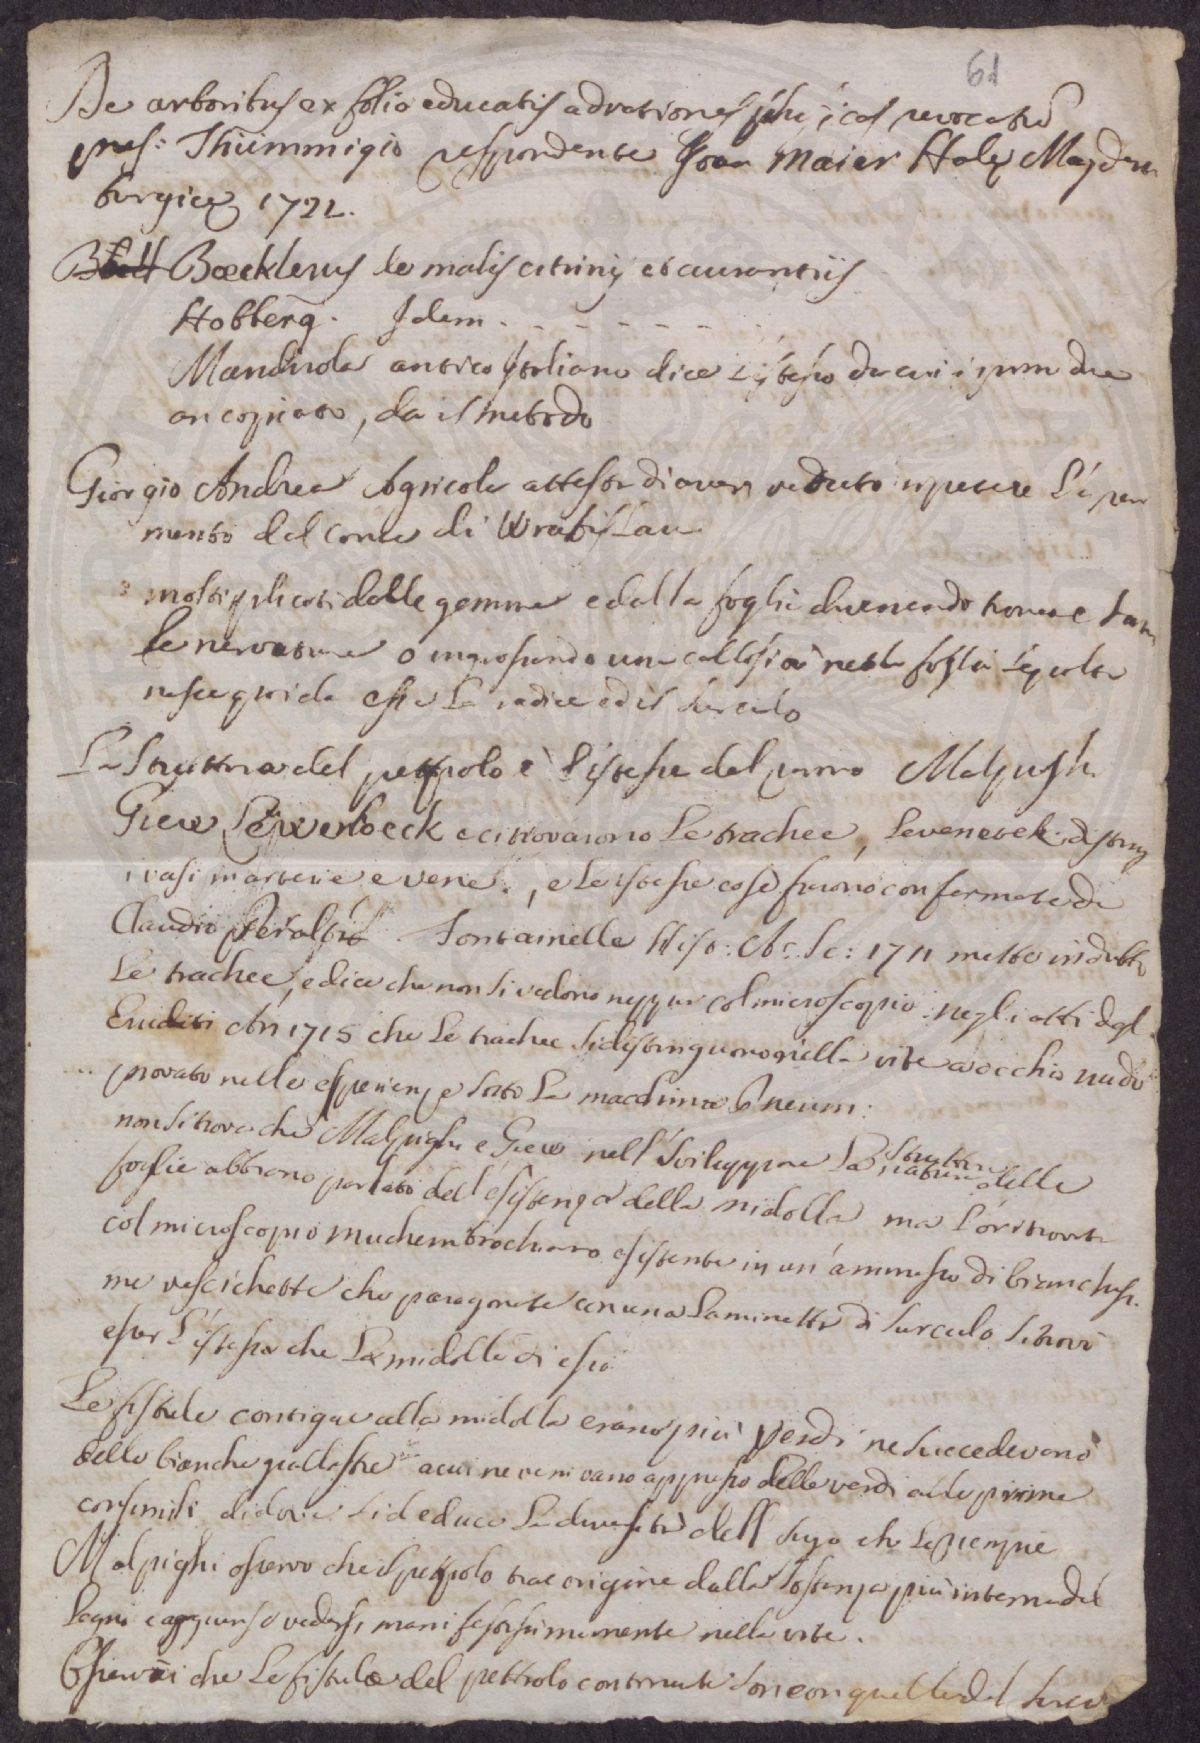 61
De arboribus ex folio educatis ad rationes revocatis
pres: Thümmigio respondente Joan Maier Hale Magde
burgice 1722.
Boecklerus de malis citriniis et aurantiis
Hobberg. Idem - - - - - -
Mandirola antico Italiano dice l'istesso da cui i primi due
an copiato, da il metodo
Giorgio Andrea Agricola attesta di aver veduto ripetere l'esperi
mento del conte di Wratislau
moltiplicati dalle gemme e dalla foglia divenendo tronco e rami
le nervature o ingrossando una callosità nella foglia sepolta
nasce quida essa la radice ed il surculo
La struttura del petiolo è l'istessa del ramo Malpighi
Grew Lewenoeck e ci trovarono le trachee, Levenoek disting
i vasi in arterie e vene, e le istesse cose furono confermate di
Claudio Peralt Fontainelle Hist: Ac. Sc: 1711 mette in dubbio
le trachee, e dice che non si vedono neppur col microscopio negli atti degl
Eruditi An 1715 che le trachee si distinguono nella vite a occhio nudo
provato nelle esperienze sotto la macchina Pneum:
non si trova che Malpighi e Grew nell' sviluppare la struttura natura delle
foglie abbiano parlato dell'esistenza della midolla ma l'o ritrovata
col microscopio esistente in un ammasso di bianchissi
me vescichette che paragonate con una laminetta di surculo si trovò
esser l'istessa che la midolla di esso
Le fistule contigue alla midolla erano più verdi ne succedevano
delle bianche giallastre a cui ne venivano appresso delle verdi alle prime
consimili di dove si deduce la diversità dell sugo che le riempie
Malpighi osservo che il petiolo trae origine dalla sostanza più interna del
legno e apparisce vedersi manifestissimamente nella vite.
Osservai che le fistule del pettiolo continuate son con quelle del surculo